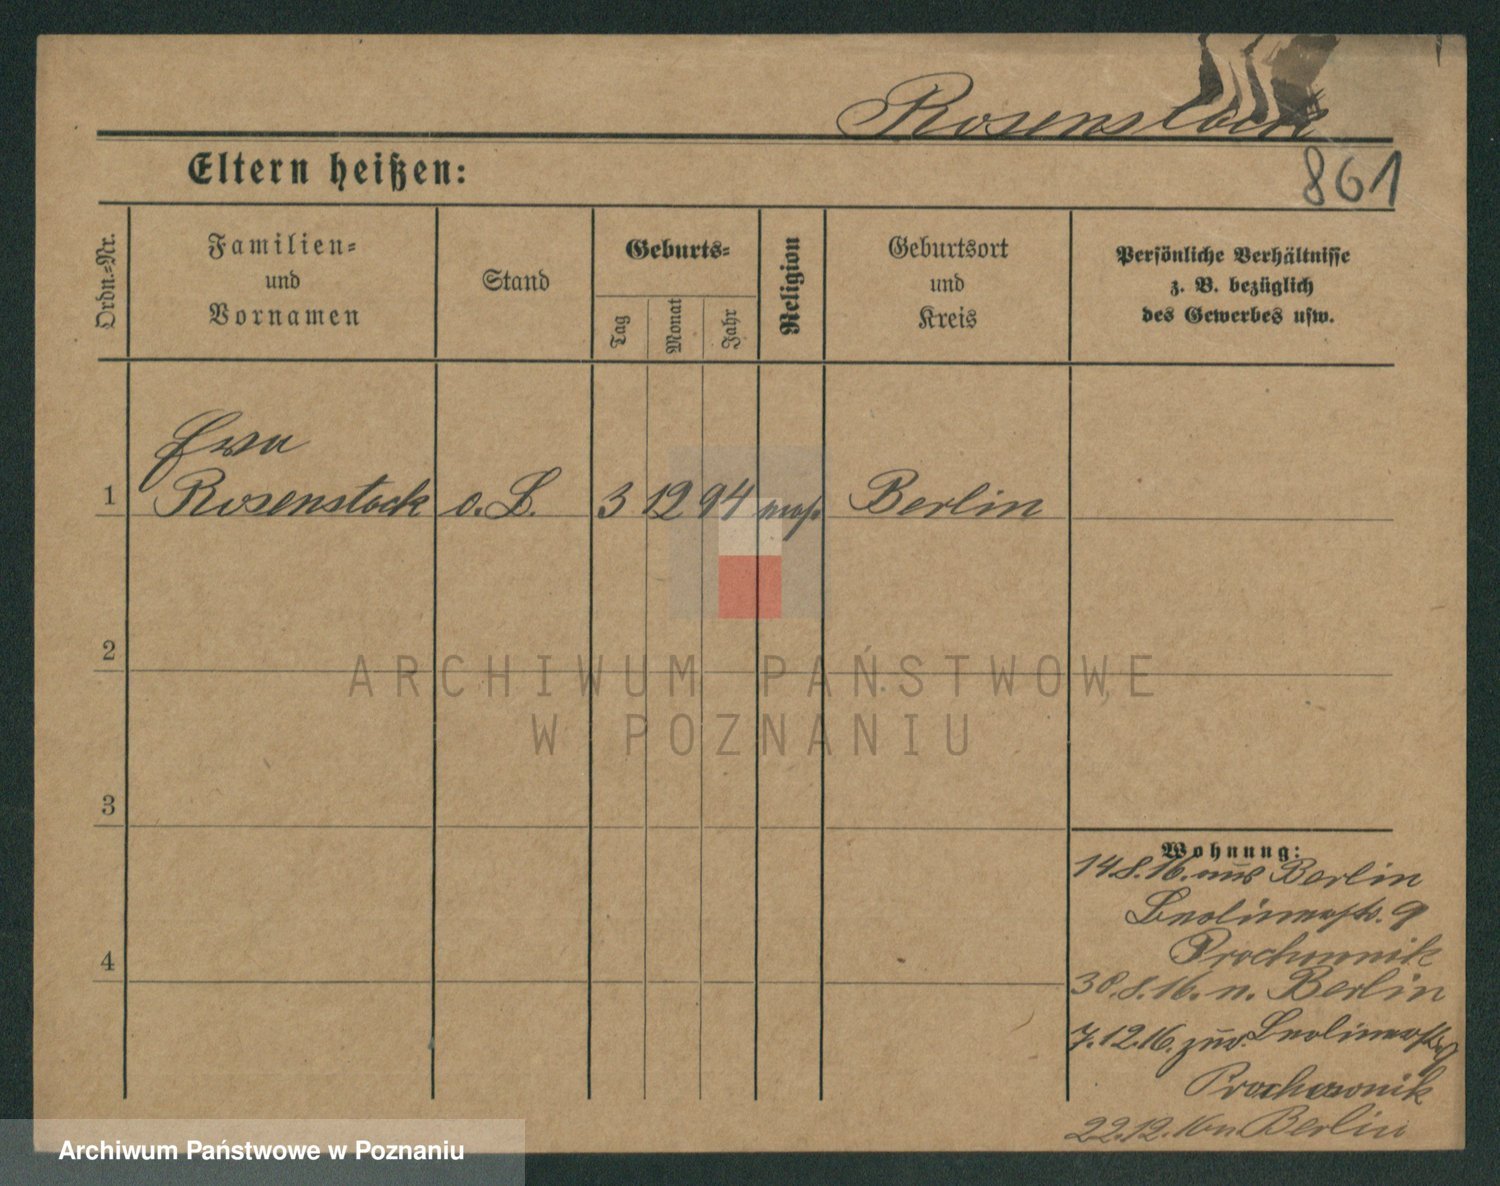 Rosenstock
Eltern heißen:
861
Ordn.=Nr.
Familien=
und
Vornamen
Stand
Geburts=
Tag
Monat
Jahr
Religion
Geburtsort
und
Kreis
Persönliche Verhältnisse
z. B. bezüglich
des Gewerbes usw.
Ewa
1 Rosenstock o. B. 3 12 94 mos. Berlin
2
ARCHIWUM PAŃSTWOWE
W POZNANIU
3
Wohnung:
14.8.16. aus Berlin
9
Prochownik
30.8.16. n. Berlin
7.12.16. zur.
Prochownik
22.12.16 n Berlin
4
Archiwum Państwowe w Poznaniu